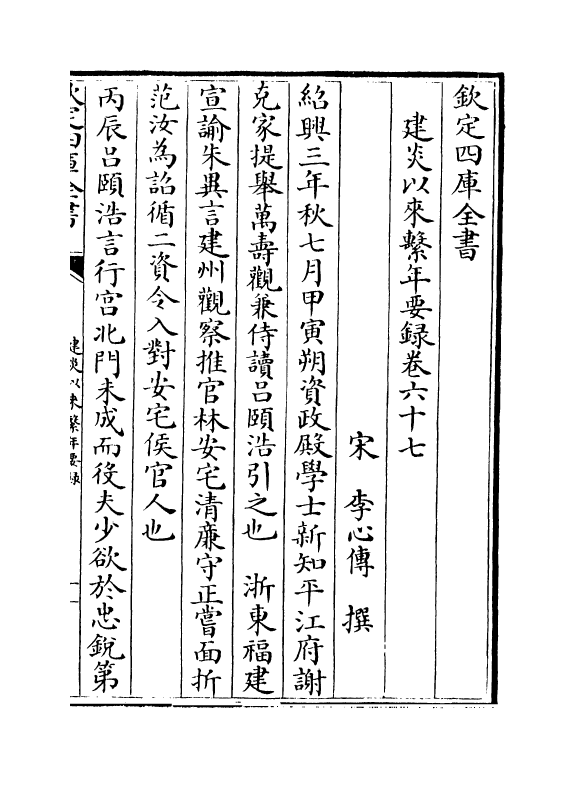 欽定四庫全書
建炎以來繫年要録卷六十七
宋 李心傳 撰
紹興三年秋七月甲寅朔資政殿學士新知平江府謝
克家提舉萬壽觀兼侍讀吕頤浩引之也 浙東福建
宣諭朱異言建州觀察推官林安宅清廉守正嘗面折
范汝為詔循二資令入對安宅侯官人也
丙辰吕頤浩言行宫北門未成而役夫少欲於忠鋭第
欽定四庫全書
建炎以來繫年要録
一